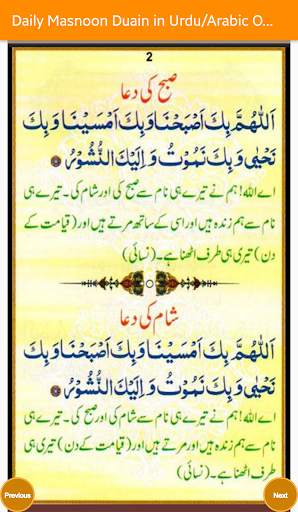 Daily Masnoon Duain in Urdu/Arabic O...
2
صبح کی دعا
اَللّٰهُمَّ بِكَ اَصْبَحْنَا وَبِكَ اَمْسَيْنَا وَبِكَ
نَحْيٰى وَبِكَ نَمُوْتُ وَاِلَيْكَ النُّشُوْرُ
اے اللہ! ہم نے تیرے ہی نام سے صبح کی اور شام کی۔ تیرے ہی
نام سے ہم زندہ ہیں اور اسی کے ساتھ مرتے ہیں اور (قیامت کے
دن) تیری ہی طرف اٹھنا ہے۔ (نسائی)
شام کی دعا
اَللّٰهُمَّ بِكَ اَمْسَيْنَا وَبِكَ اَصْبَحْنَا وَبِكَ
نَحْيٰى وَبِكَ نَمُوْتُ وَاِلَيْكَ النُّشُوْرُ
اے اللہ! ہم نے تیرے ہی نام سے شام کی اور صبح کی۔ تیرے ہی
نام سے ہم زندہ ہیں اور مرتے ہیں اور (قیامت کے دن) تیری ہی
طرف اٹھنا ہے۔ (نسائی)
Previous
Next